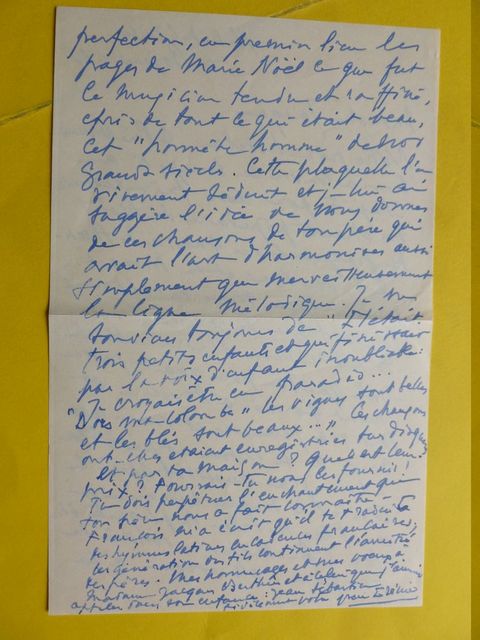 perfection, en premier lieu les
pages de Marie Noël ce que fut
ce musicien tendu et raffiné,
épris de tout ce qui était beau,
cet "honnête homme" de nos
Grands siècles. Cette plaquette l'a
vivement séduit et je lui ai
suggéré l'idée de nous donner
de ces chansons de ton père qui
avait l'art d'harmoniser aussi
simplement que merveilleusement
la ligne mélodique. Je me
souviens toujours de "Il était
trois petits enfants et qui finissait
par la voix d'enfant inoubliable:
Je croyais être en paradis...
"Dors ma colombe" "les vignes sont belles
et les blés sont beaux..." ces chansons
ont-elles étaient enregistrées sur disques
et par ta maison? Quel est leur
prix? Pourrais-tu nous les fournir!
Tu dois perpétuer l'enchantement que
ton père nous a fait connaître
François m'a écrit qu'il te traduira
les hymnes latines en français;
les génération des fils continuent l'amitié
des pères. Mes hommages et mes voeux à
Madame Jacques Berthier et à celui que j'aimais
appeler dans son enfance: Jean Sébastien